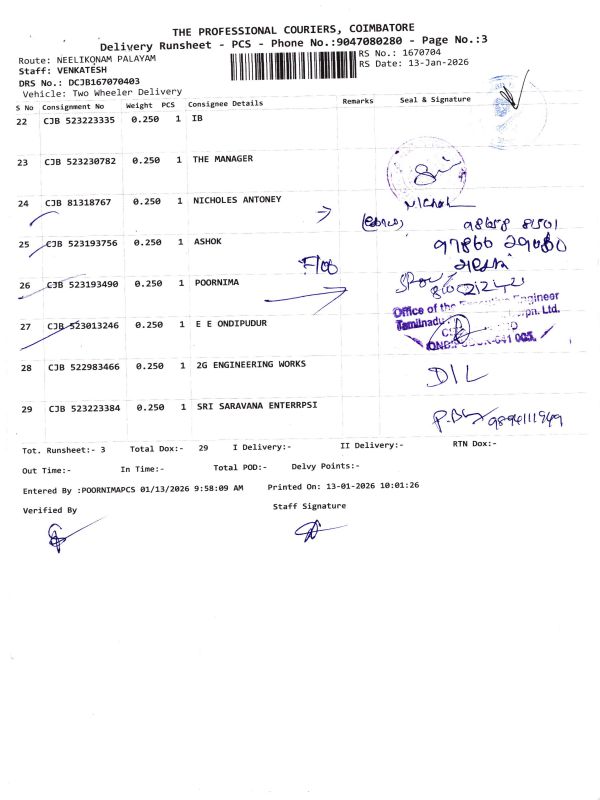 THE PROFESSIONAL COURIERS, COIMBATORE
Delivery Runsheet - PCS - Phone No.:9047080280 - Page No.:3
Route: NEELIKONAM PALAYAM
RS No.: 1670704
Staff: VENKATESH
RS Date: 13-Jan-2026
DRS No.: DCJB167070403
Vehicle: Two Wheeler Delivery
S No Consignment No Weight PCS Consignee Details Remarks Seal & Signature
22 CJB 523223335 0.250 1 IB
23 CJB 523230782 0.250 1 THE MANAGER
24 CJB 81318767 0.250 1 NICHOLES ANTONEY
Nichol
98658 81501
25 CJB 523193756 0.250 1 ASHOK
97866 29080
26 CJB 523193490 0.250 1 POORNIMA
Office of the Executive Engineer
Tamilnadu
27 CJB 523013246 0.250 1 E E ONDIPUDUR
28 CJB 522983466 0.250 1 2G ENGINEERING WORKS
DIL
29 CJB 523223384 0.250 1 SRI SARAVANA ENTERRPSI
9894111949
Tot. Runsheet:- 3 Total Dox:- 29 I Delivery:- II Delivery:- RTN Dox:-
Out Time:- In Time:- Total POD:- Delvy Points:-
Entered By :POORNIMAPCS 01/13/2026 9:58:09 AM Printed On: 13-01-2026 10:01:26
Verified By Staff Signature